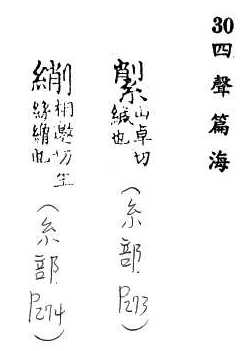 30
四聲篇海
山卓切
緘也
(糸部 P273)
相邀切生
絲也
(糸部 P274)